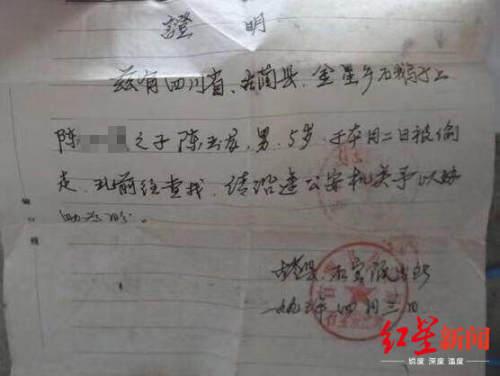 證 明
兹有四川省、古蔺县、金星乡石鹅村二
陈 之子陈玉龙,男,5岁,于本月二日被偷
走,现前经查找,请沿途公安机关予以协
助为盼。
古蔺县
一九九 年四月三日
红星新闻
锐度 深度 温度